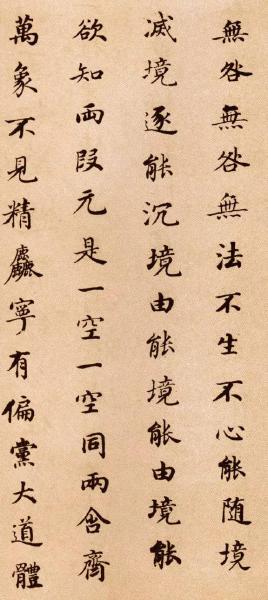 無咎無咎無法不生不心能随境
滅境逐能沉境由能境能由境能
欲知两段元是一空一空同兩含齊
萬象不見精麤寧有偏黨大道體